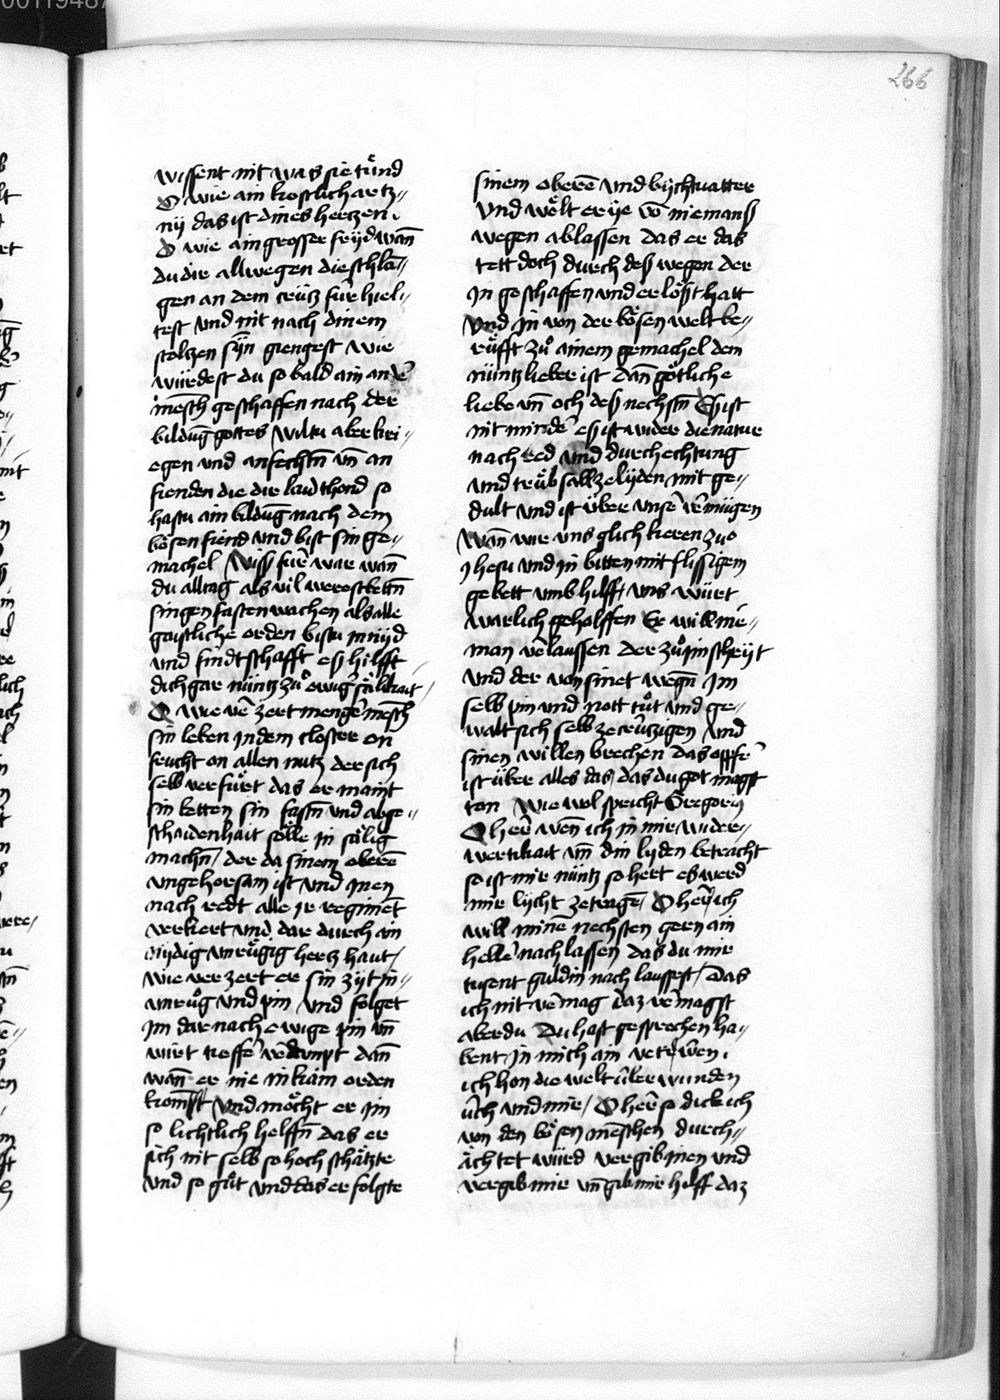 266
wissent nit was sie tůnd
O wie ain kostlich artz„
nij das ist dines hertzen .
O wie ain grosser frijd wañ
du dir allwegen die schla„
gen an dem crütz für hiel„
test und nit nach dinem
stoltzen sijn giengest wie
würdest du so bald ain and̄
mēsch geschaffen nach der
bildūg gottes Wiltu aber kri„
egen und anfechtn̄ vn̄ an
fienden die die laid thond so
hastu ain bildūg nach dem
bösen fiend und bist sin ge„
machel Wiss für war wañ
du alltag als vil werest bettn̄
singen fasten wachen als alle
gaistliche orden bistu in nijd
und findtschafft es hilfft
dich gar nüntz zů ewiḡ sälikait
O wie v̄zert mengē mēsch
sin leben in dem closter on
frucht on allen nutz der sich
selb verfürt das er maint
sin betten sin fastn̄ und abge„
schaidenhait sölle in sälig
machn̄ / der da sinem oberē
ungehorsam ist und inen
nach redt alle ir regimēt
verkiert und dar durch ain
nijdig unrüwig hertz haut /
wie verzert er sin zijt in„
unrůg und pin und folget
im dar nach ewige pin vn̄
wirt tieffer v̄dampt dañ
wañ er nie in kain orden
kompt Und möcht er im
so lichtlich helffn̄ das er
sich nit selb so hoch schätzte
und so gůt und das er folgte
sinem oberē und bijchtuatter
Und wölt er ije vō niemans
wegen ablassen das er das
tett doch durch des wegen der
in geschaffen und erlösst hatt
und in von der bösen welt be„
růfft zů ainem gemachel dem
nüntz lieber ist dañ götliche
liebe vn̄ och des nechstn̄ Es ist
nit mindē es ist wider die natur
nach red und durchechtung
und trübsall ze lijden mit ge„
dult und ist über unsē v̄mügen
Wañ wir uns glich kieren zuo
ihesu und in bitten mit flissigem
gebett umb hilff / uns würt
warlich geholffen Er will nie„
man v̄laussen der zů im schrijt
und der von sinet wegn̄ im
selb pin und nott tůt und ge„
walt sich selb ze crützigen und
sinen willen brechen das opffē
ist über alles das / das du got magst
ton Wie wol spricht Gregoriꝰ
O herr̄ wen̄ ich in mir wider„
wertikait vn̄ din lijden betracht
so ist mir nüntz so hert es werd
mir lijcht ze tragē / O her̄ ich
will minē nechsten gern ain
helle nach lassen das du mir
tusent guldin nach laussest / Das
ich nit v̄mag daz v̄magst
aber du Du hast gesprochen ha„
bent in mich ain vertrüwen .
ich hon die welt überwunden
üch und mir / O her̄ so dick ich
von den bösen mēschen durch„
ächtet würd vergib inen und
vergib mir vn̄ gib mir hilff daz